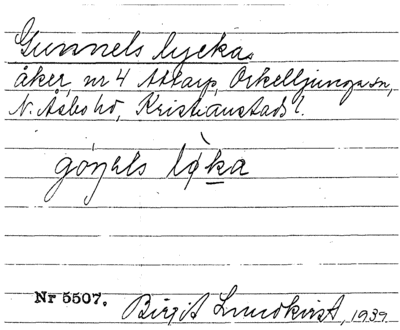 Gunnels lycka
åker, nr 4 Attarp, Örkelljunga sn,
N. Åsbo hd, Kristianstads l.
goŋəls lỳka
Nr 5507. Birgit Lundkvist, 1939.